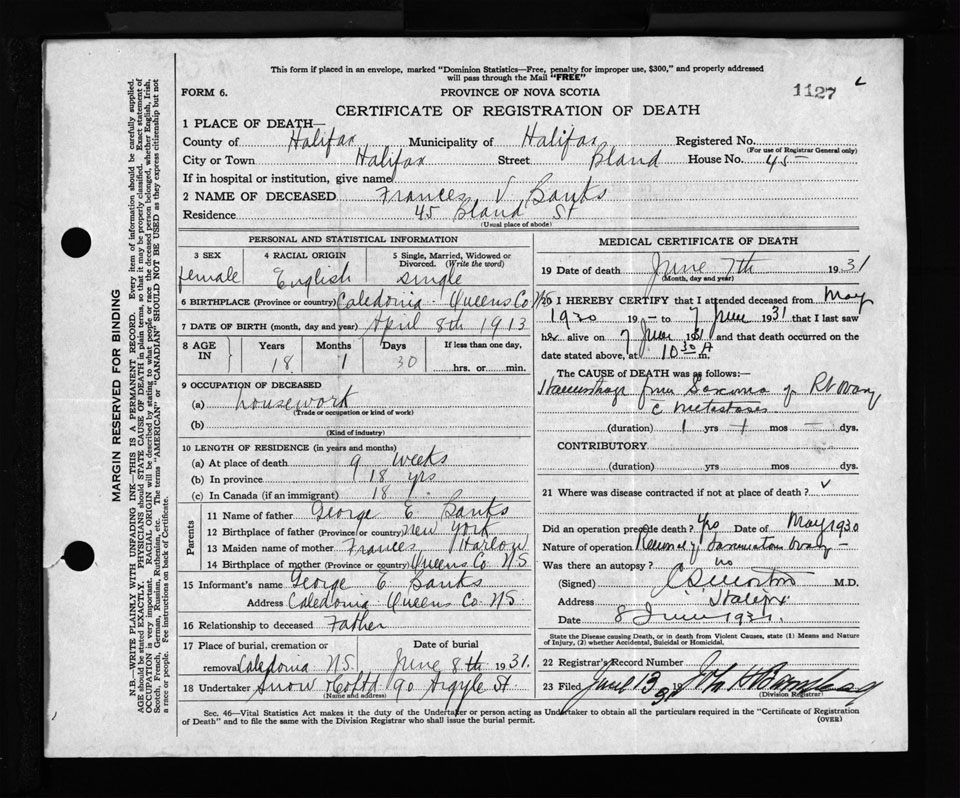 This form if placed in an envelope, marked "Dominion Statistics—Free, penalty for improper use, $300," and properly addressed
will pass through the Mail "FREE"
FORM 6.
PROVINCE OF NOVA SCOTIA
1127
CERTIFICATE OF REGISTRATION OF DEATH
1 PLACE OF DEATH—
County of Halifax Municipality of Halifax Registered No.
(For use of Registrar General only)
City or Town Halifax Street Bland House No. 45
If in hospital or institution, give name
2 NAME OF DECEASED Frances V Banks
Residence 45 Bland St
(Usual place of abode)
MARGIN RESERVED FOR BINDING
N.B.—WRITE PLAINLY WITH UNFADING INK—THIS IS A PERMANENT RECORD. Every item of information should be carefully supplied.
AGE should be stated EXACTLY. PHYSICIANS should STATE CAUSE OF DEATH in plain terms, so that it may be properly classified. Exact statement of
OCCUPATION is very important. RACIAL ORIGIN will be described by stating to what people or race the deceased person belonged, whether English, Irish,
Scotch, French, German, Russian, Ruthenian, etc. The terms "AMERICAN" or "CANADIAN" SHOULD NOT BE USED as they express citizenship but not
a race or people. Fee instructions on back of Certificate.
PERSONAL AND STATISTICAL INFORMATION
3 SEX 4 RACIAL ORIGIN 5 Single, Married, Widowed or
Divorced. (Write the word)
female English single
6 BIRTHPLACE (Province or country) Caledonia Queens Co NS
7 DATE OF BIRTH (month, day and year) April 8th 1913
8 AGE IN Years Months Days If less than one day,
18 1 30 hrs. or min.
9 OCCUPATION OF DECEASED
(a) housework
(Trade or occupation or kind of work)
(b)
(Kind of industry)
10 LENGTH OF RESIDENCE (in years and months)
(a) At place of death 9 weeks
(b) In province 18 yrs
(c) In Canada (if an immigrant) 18
Parents
11 Name of father George E Banks
12 Birthplace of father (Province or country) New York
13 Maiden name of mother Frances Harlow
14 Birthplace of mother (Province or country) Queens Co N.S.
15 Informant's name George E Banks
Address Caledonia Queens Co NS
16 Relationship to deceased Father
17 Place of burial, cremation or Date of burial
removal Caledonia N.S. June 8th 1931.
18 Undertaker Snow & Co Ltd 90 Argyle St
(Name and address)
MEDICAL CERTIFICATE OF DEATH
19 Date of death June 7th 1931
(Month, day and year)
20 I HEREBY CERTIFY that I attended deceased from May
1930 19 to 7 June 1931 that I last saw
her alive on 7 June 1931 and that death occurred on the
date stated above, at 10 30 A m.
The CAUSE of DEATH was as follows:—
Haemorrhage from Sarcoma of Rt Ovary
c metastases
(duration) 1 yrs + mos — dys.
CONTRIBUTORY
(duration) yrs mos dys.
21 Where was disease contracted if not at place of death?
Did an operation precede death? yes Date of May 1930
Nature of operation Removal of Ovary
Was there an autopsy? no
(Signed) M.D.
Address Halifax
Date 8 June 1931.
State the Disease causing Death, or in death from Violent Causes, state (1) Means and Nature
of Injury, (2) whether Accidental, Suicidal or Homicidal.
22 Registrar's Record Number
23 Filed June 13 1931 John H
(Division Registrar)
Sec. 46—Vital Statistics Act makes it the duty of the Undertaker or person acting as Undertaker to obtain all the particulars required in the "Certificate of Registration
of Death" and to file the same with the Division Registrar who shall issue the burial permit.
(OVER)